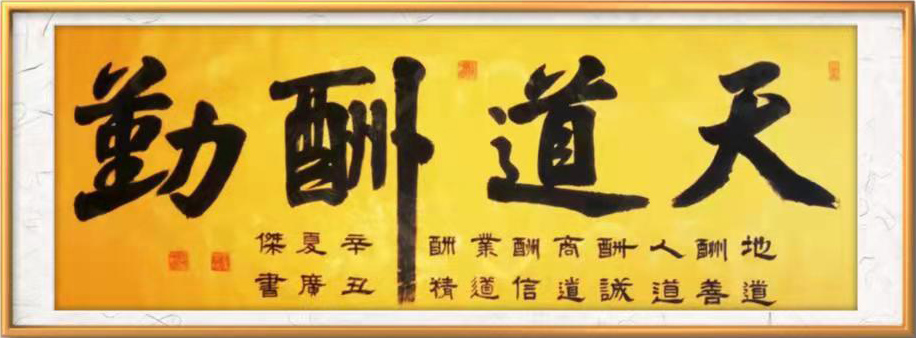 天道酬勤
地道
酬善
人道
酬誠
商道
酬信
業道
酬精
辛丑
夏廣
傑書